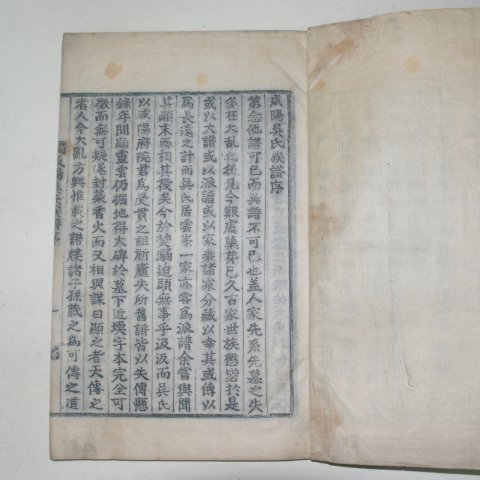 咸陽吳氏族譜序
第念他譜可已而吳譜不可已也盖人家先系先墓之失
多在大亂之後見今艱虞孽芽已久百家世族懲毖於是
或以大譜或以派譜或以家藁諸家分藏以幸其或傳以
爲長遠之計而吳氏居雲峯一家亦零爲派譜余嘗與聞
其顚末而相其後矣今於焚溺迫頭無事乎汲汲而吳氏
以咸陽府院君爲受貫之祖新廬失所舊譜皆以失傳懸
錄年間顯靈雲仍掘地得大碑於墓下近壙字本完全可
徵而無可疑遂封築香火而又相與謀曰顯之者天傳之
者人今大亂方興惟載之譜牒諸子孫藏之爲可傳之道
咸陽吳氏族譜序